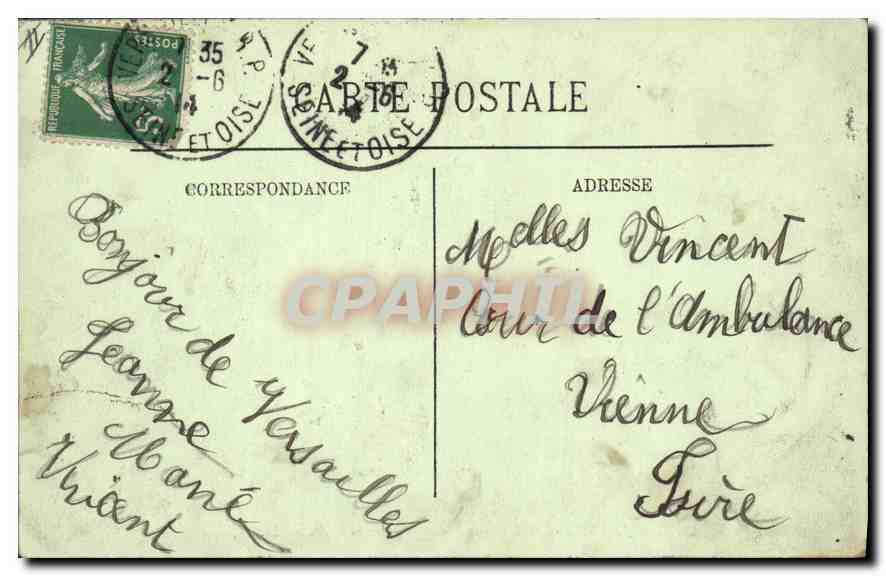 II
REPUBLIQUE FRANÇAISE
POSTES
35
2 -6
SEINE ET OISE
7
2 - 6
SEINE ET OISE
CARTE POSTALE
CORRESPONDANCE
ADRESSE
Bonjour de Versailles
Jeanne
Marie
Vincent
Melles Vincent
Cour de l'Ambulance
Vienne
Isère
CPAPHIL